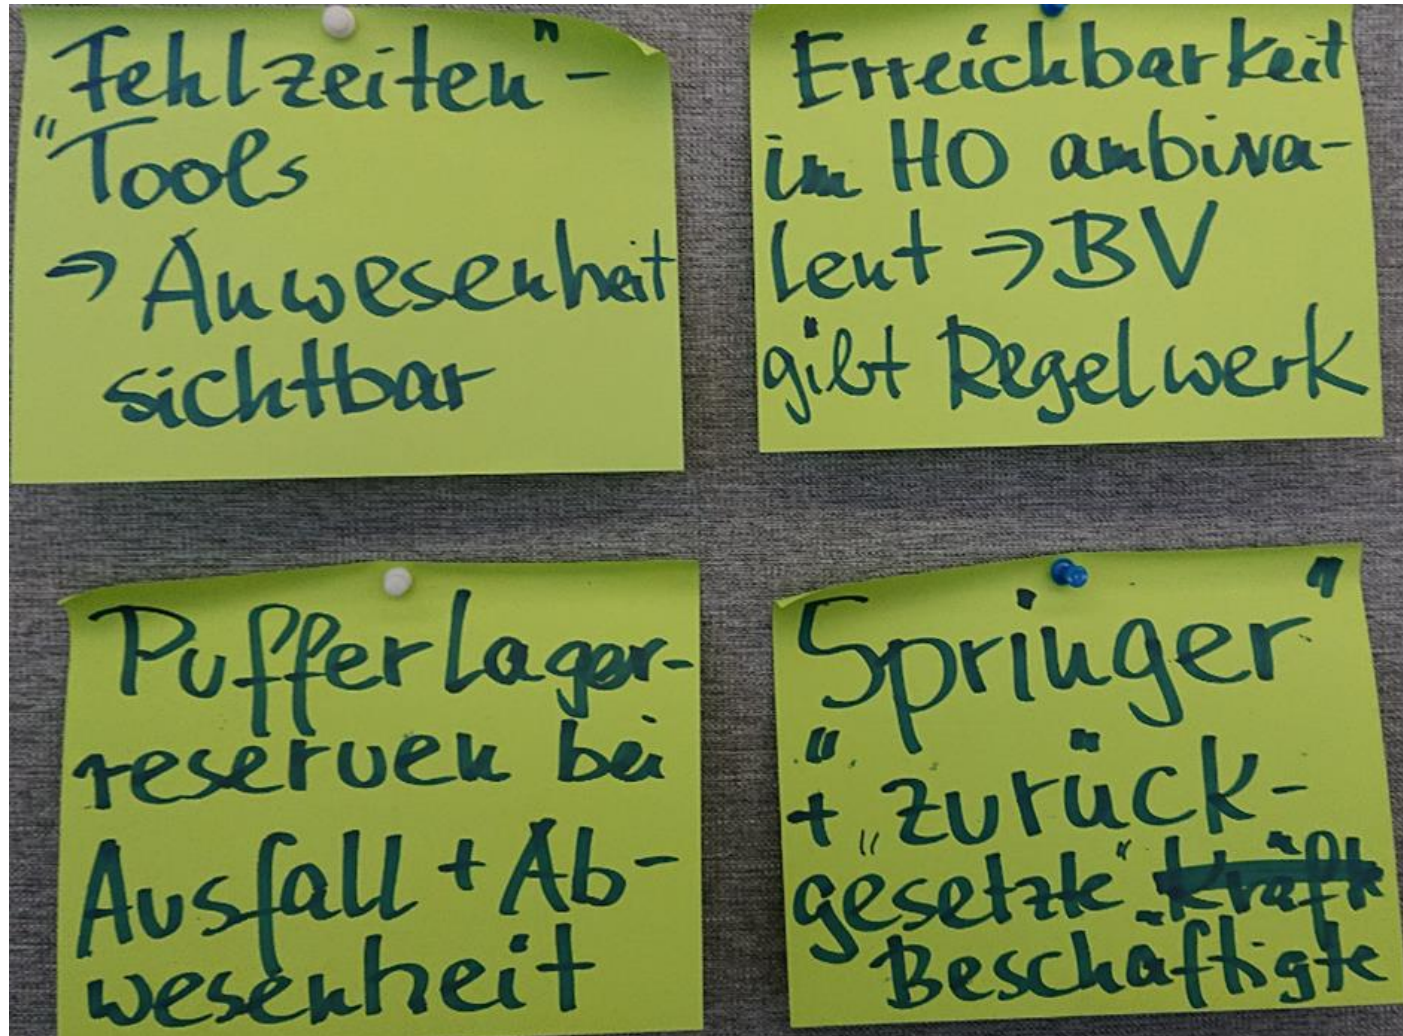 Fehlzeiten"-
"Tools
→ Anwesenheit
sichtbar
Erreichbarkeit
im HO ambiva-
lent → BV
gibt Regelwerk
Pufferlager-
reserven bei
Ausfall + Ab-
wesenheit
Springer"
"
+ „zurück-
gesetzte" Kräft
Beschäftigte